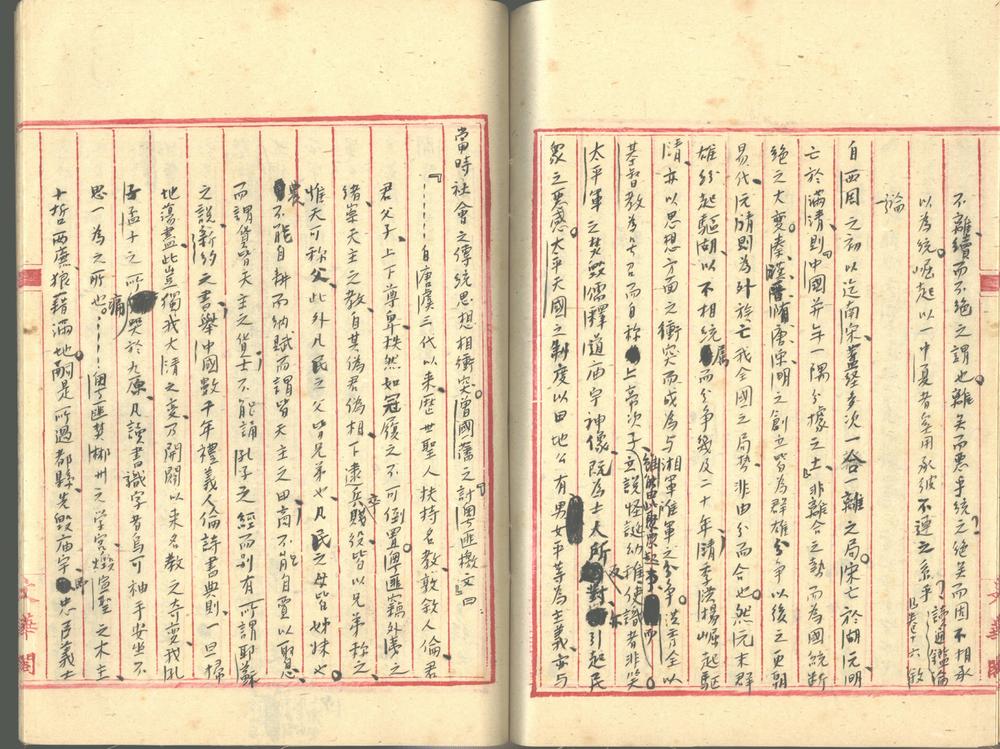 不離續而不絕之謂也。離矣而惡乎統之絕矣而因不相承
以為統。崛起以一中夏者奚用承彼不連之系乎？讀通鑑論
卷十六叙
論
自西周之初以迄南宋蓋經多次一合一離之局。宋亡於湖元明
亡於滿清、則中國并年一隅分據之土、非離合之勢而為國統斷
絕之大變。秦隋唐宋明之創立皆為群雄分爭以後之更朝
易代元清則為外族亡我全國之局勢、非由分而合也。然元末群
雄紛起驅湖、以不相統屬而分爭幾及二十年、清季洪楊崛起驅
清、亦以思想方面之衝突而成為與湘軍淮軍之分爭。洪秀全以
基督教為号召而自称上帝次子立說怪誕幼稚使識者非笑
太平軍之焚毀儒釋道西宇神像既為士人所反對引起民
眾之惡感。太平天國之制度以田地公有男女平等為主義亦与
當時社會之傳統思想相衝突。曾國藩之討粵匪檄文四：
『……自唐虞三代以来、歷世聖人扶持名教敦敘人倫君
君父子、上下尊卑秩然如冠履之不可倒置。粵匪竊外夷之
緒崇天主之教、自其偽君偽相下逮兵卒賤役皆以兄弟称之
惟天可称父、此外凡民之父皆兄弟也、凡民之母皆姊妹也。
農不能自耕而納賦而謂皆天主之田、商不能自賈以取息
而謂貨皆天主之貨、士不能誦孔子之經而別有所謂耶穌
之說、新約之書、舉中國數千年禮義人倫詩書典則、一旦掃
地蕩盡此豈獨我大清之变、乃開闢以来名教之奇变、我孔
子孟子之所痛哭於九原、凡讀書識字者烏可袖手安坐不
思一為之所也。……粵匪焚郴州之学宮、燬宣聖之木主、
十哲兩廡狼藉滿地。嗣是所過都縣先毀庙宇、即忠臣義士